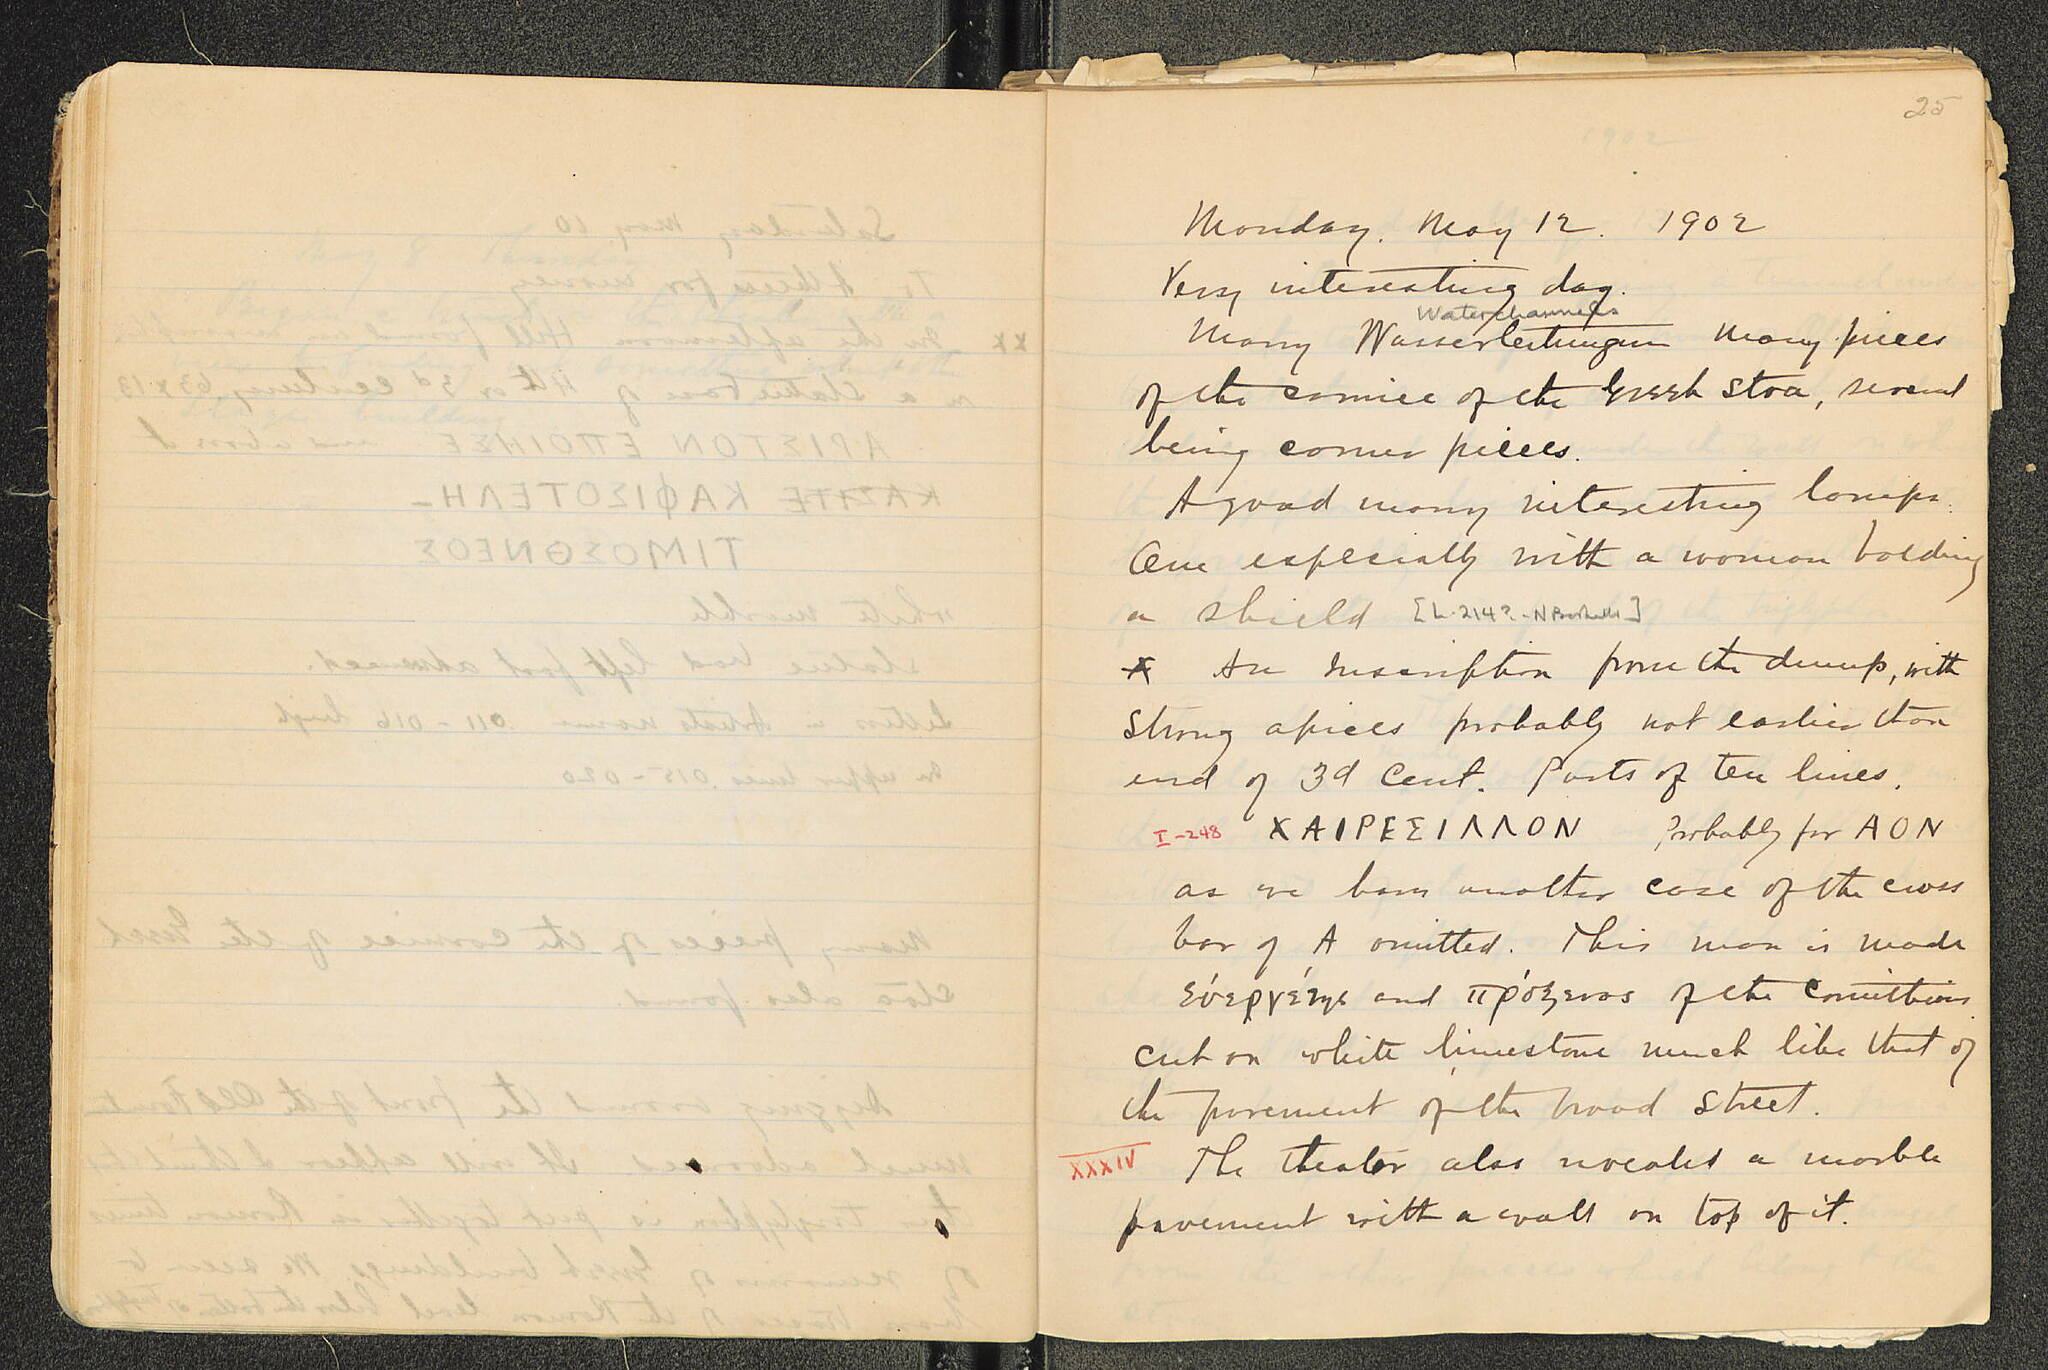 25
Monday. May 12. 1902
Very interesting day.
Waterchannels
Many Wasserleitungen Many pieces
of the cornice of the Greek Stoa, several
being corner pieces.
A good many interesting lamps.
One especially with a woman holding
a shield [L-214? - N Bookidis]
X An Inscription from the dump, with
strong apices probably not earlier than
end of 3d Cent. Parts of ten lines.
I-248 ΧΑΙΡΕΣΙΛΛΟΝ Probably for ΛΑΟΝ
as we have another case of the cross
bar of A omitted. This man is made
εὐεργέτης and πρόξενος of the Corinthians.
Cut on white limestone much like that of
the pavement of the broad street.
XXXIV The theater also revealed a marble
pavement with a wall on top of it.